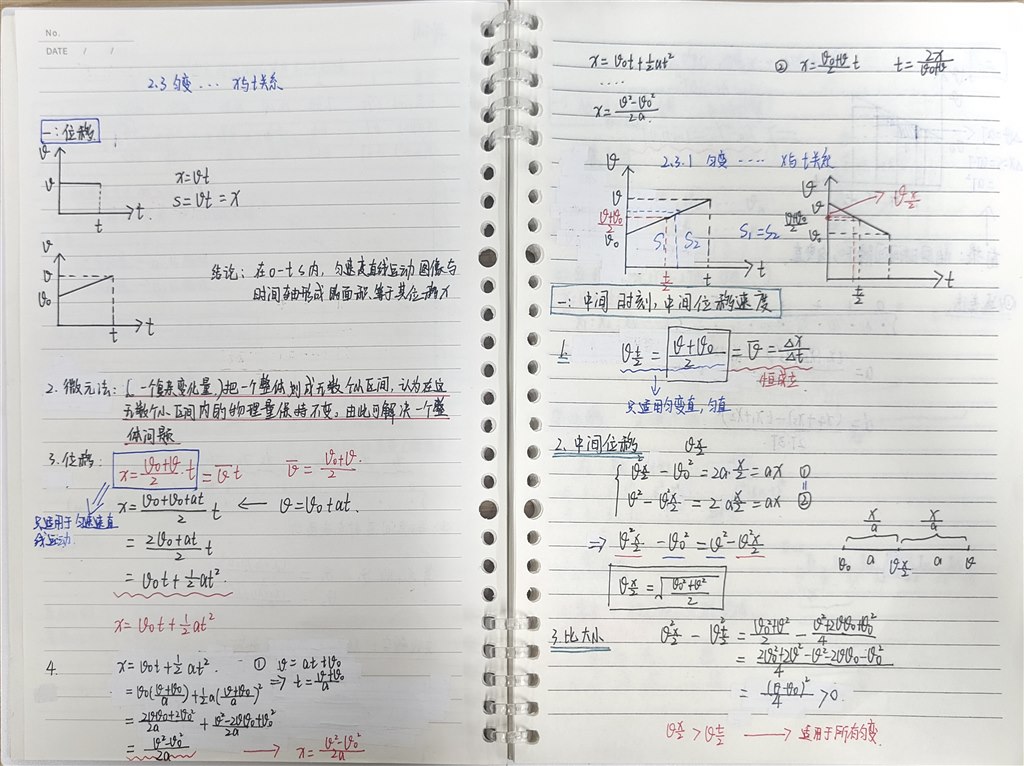 No.
DATE / /
2.3 匀变 ... x与t关系
一:位移
v
v
t
t
x=vt
s=vt=x
v
v
v₀
t
t
结论: 在0-t s内, 匀速直线运动 图像与
时间轴形成的面积等于其位移x
2. 微元法: (一个复杂变化量) 把一个整体划成无数个小区间, 认为在这
无数个小区间内的物理量保持不变。由此可解决一个整
体问题
3. 位移: x=(v₀+v)/2·t = v̄t v̄=(v₀+v)/2
只适用于匀变速直
线运动
x=(v₀+v₀+at)/2 t ← v=v₀+at.
=(2v₀+at)/2 t
=v₀t+½at².
x=v₀t+½at²
4. x=v₀t+½at². ① v=at+v₀
=v₀((v+v₀)/a)+½a((v+v₀)/a)² ⇒ t=(v+v₀)/a
=(2vv₀+2v₀²)/2a+(v²-2vv₀+v₀²)/2a
=(v²-v₀²)/2a → x=(v²-v₀²)/2a
x=v₀t+½at² ② x=(v₀+v)/2 t t=2x/(v₀+v)
....
x=(v²-v₀²)/2a
2.3.1 匀变 .... x与t关系
v
v
(v+v₀)/2
v₀
S₁ S₂
t/2
t
t
S₁=S₂
v
v
(v+v₀)/2
v₀
v x/2
t/2
t
一: 中间时刻, 中间位移速度
1. v t/2 = (v+v₀)/2 = v̄ = Δx/Δt
恒成立
只适用匀变直, 匀直
2. 中间位移 v x/2
v² x/2 - v₀² = 2a·x/2 = ax ①
v² - v² x/2 = 2a x/2 = ax ②
⇒ v² x/2 - v₀² = v² - v² x/2
v x/2 = √((v₀²+v²)/2)
x/a x/a
v₀ a v x/2 a v
3. 比大小 v² x/2 - v² t/2 = (v₀²+v²)/2 - (v²+2vv₀+v₀²)/4
=(2v₀²+2v²-v²-2vv₀-v₀²)/4
=(v-v₀)²/4 >0.
v x/2 > v t/2 → 适用于所有匀变